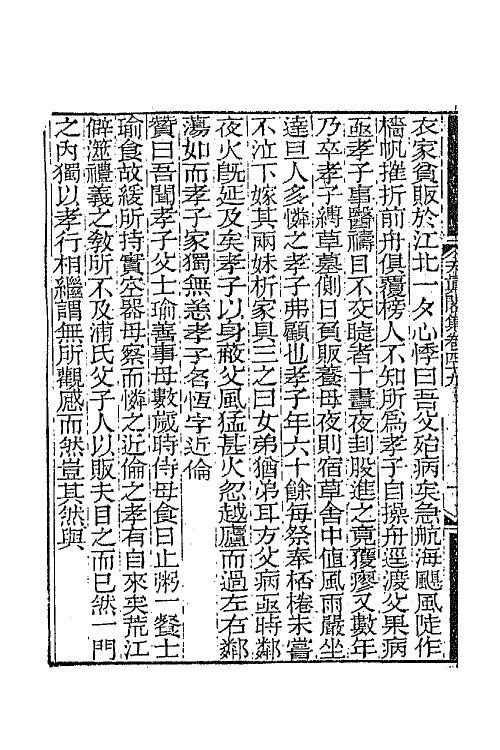 衣家貧販於江北一夕心悸曰吾父殆病矣急航海颶風陡作
檣帆摧折前舟俱覆榜人不知所為孝子自操舟逕渡父果病
亟孝子事醫禱目不交睫者十晝夜刲股進之竟獲瘳又數年
乃卒孝子縛草墓側日負販養母夜則宿草舍中値風雨嚴坐
達旦人多憐之孝子弗顧也孝子年六十餘每祭奉桮棬未嘗
不泣下嫁其兩妹析家具三之曰女弟猶弟耳方父病亟時鄰
夜火旣延及矣孝子以身蔽父風猛甚火忽越廬而過左右鄰
蕩如而孝子家獨無恙孝子名恆字近倫
贊曰吾聞孝子父士瑜善事母數歲時侍母食日止粥一餐士
瑜食故緩所持實空器母察而憐之近倫之孝有自來矣荒江
僻澨禮義之敎所不及浦氏父子人以販夫目之而已然一門
之內獨以孝行相繼謂無所觀感而然豈其然與